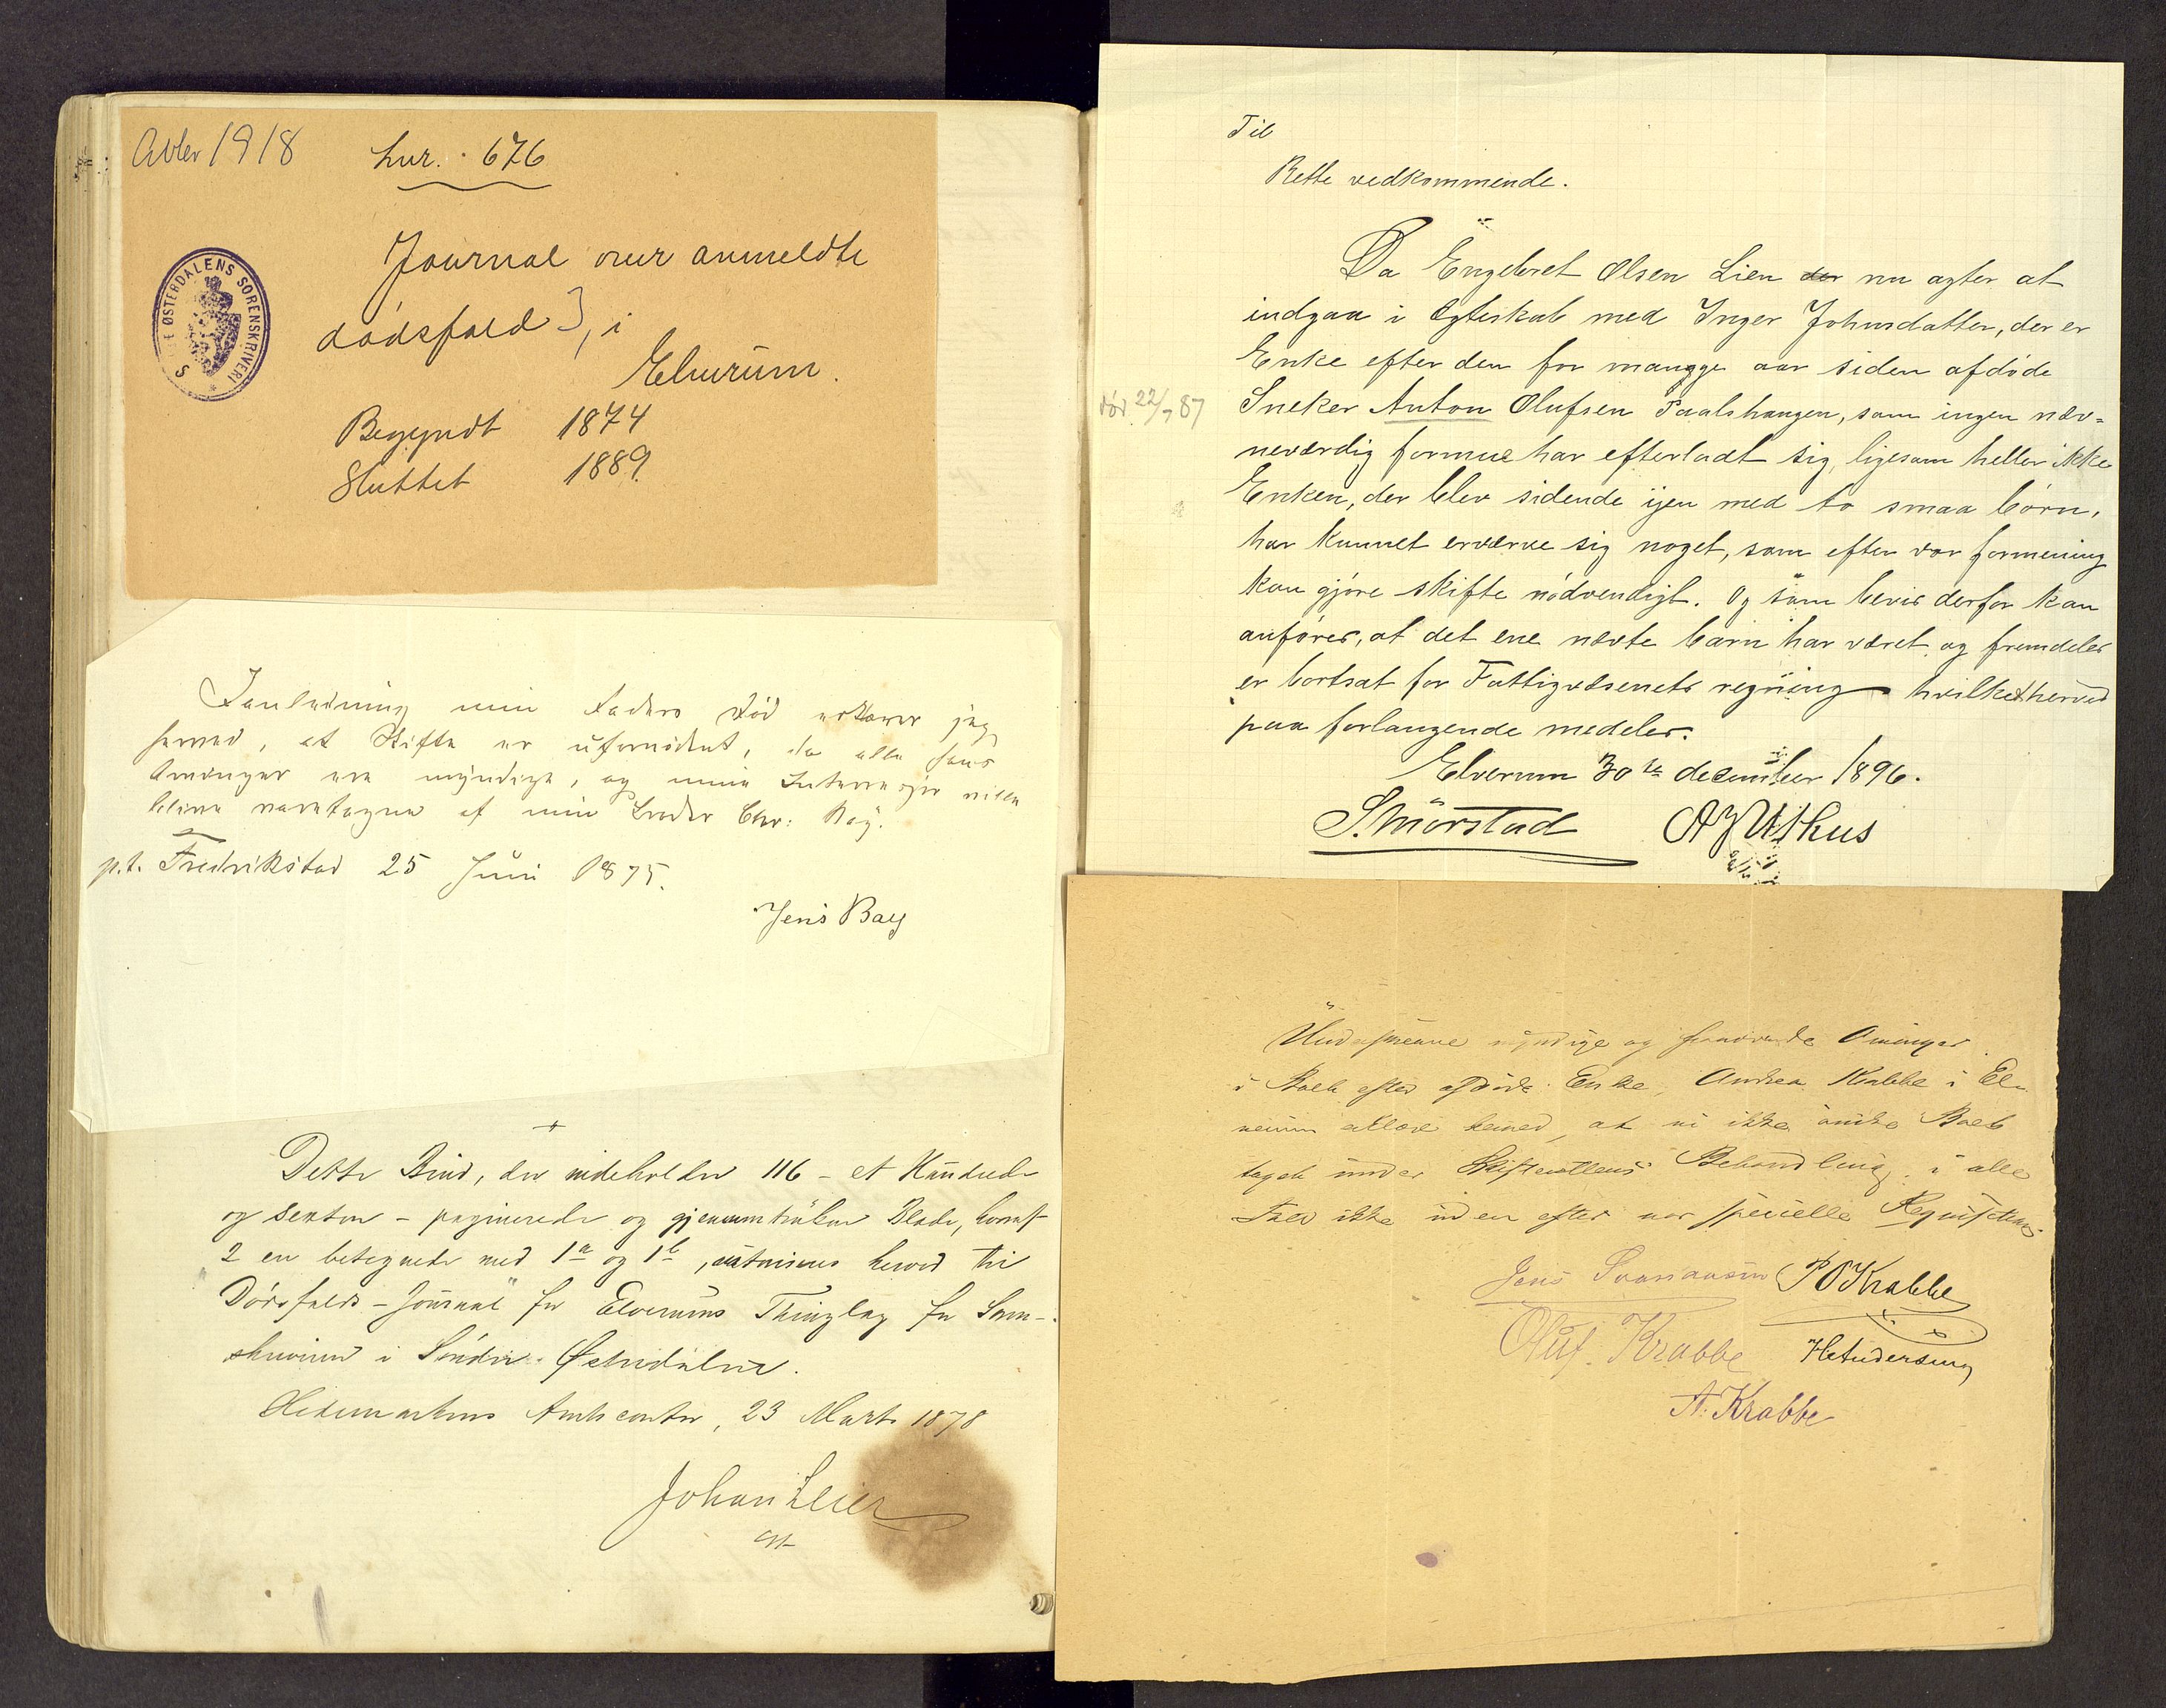 Avlev 1918 Lnr. 676
Journal over anmeldte
dødsfald, i
Elverum.
Begyndt 1874
Sluttet 1889.
SØNDRE ØSTERDALENS SORENSKRIVERI
I Anledning min Faders Død erklærer jeg
herved, at Skifte er ufornødent, da alle hans
Arvinger ere myndige, og mine Interesser ville
blive varetagne af min Broder Chr: Bay.
p.t. Fredrikstad 25 Juni 1875.
Jens Bay
Dette Bind, der indeholder 116 - et Hundrede
og sexten - paginerede og gjennemtrukne Blade, hvoraf
2 en betegnede med 1a og 1b, autoriseres herved til
"Dødsfalds-Journal" for Elverums Thinglag for Soren-
skriveren i Søndre Østerdalen.
Hedemarkens Amtscontor, 23 Marts 1878
Johan
Til
Rette vedkommende.
Da Engebret Olsen Lien der nu agter at
indgaa i Egteskab med Inger Johnsdatter, der er
Enke efter den for mangge aar siden afdøde
død 22/7 87
Sneker Anton Olufsen Paalshaugen, som ingen næv-
neværdig formue har efterladt sig, ligesom heller ikke
Enken, der blev sidende ijen med to smaa børn,
har kunnet erværve sig noget, som efter vor formening
kan gjøre skifte nødvendigt. Og som bevis derfor kan
anføres, at det ene nævte barn har været og fremdeles
er bortsat for Fattigvæsenets regning hvilket herved
paa forlangende medeles.
Elverum 30te december 1896.
S. Mörstad A J Uthus
Undertegnede myndige og Arvinger
i Boet efter afdøde Enke, Andrea Krabbe i El-
verum erklære herved, at vi ikke ønske Boet
taget under Skifterettens Behandling, i alle
Fald ikke uden efter vor specielle Reqvisition
Jens P O Krabbe
Oluf. Krabbe H Andersen
A. Krabbe